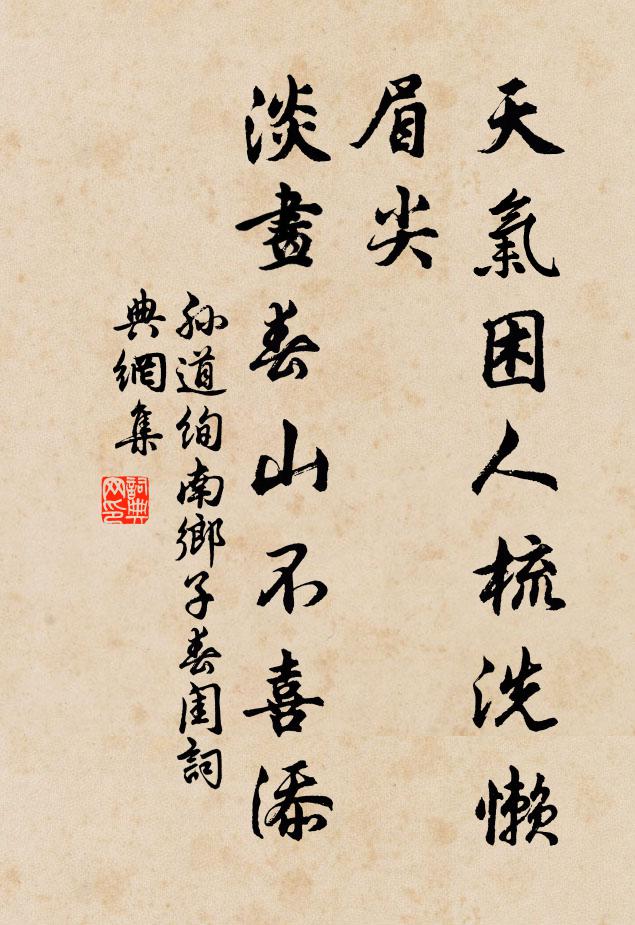 天氣困人梳洗懶
眉尖
淡畫春山不喜添
孫道絢南鄉子春閨詞
典網集
詞典
网印